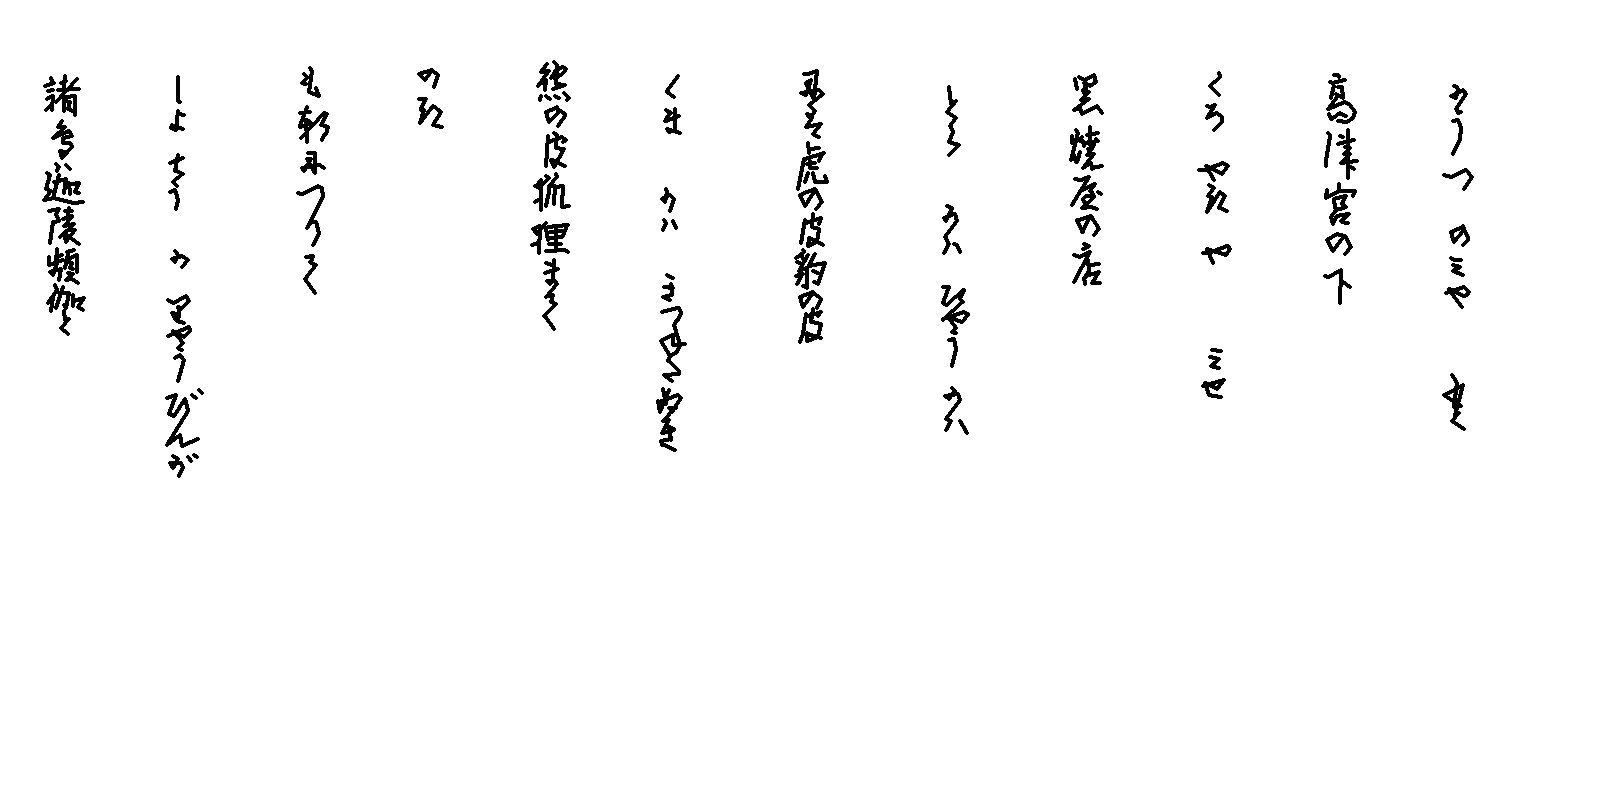 かうつ のミや
高津宮の下
くろ やき や ミせ
黒焼屋の店
とら かハ ひやう かハ
には虎の皮豹の皮
くま かハ きつねたぬき
熊の皮狐狸まて
のき
も軒につりて
しよ てう か りやうびんが
諸鳥迦陵頻伽と